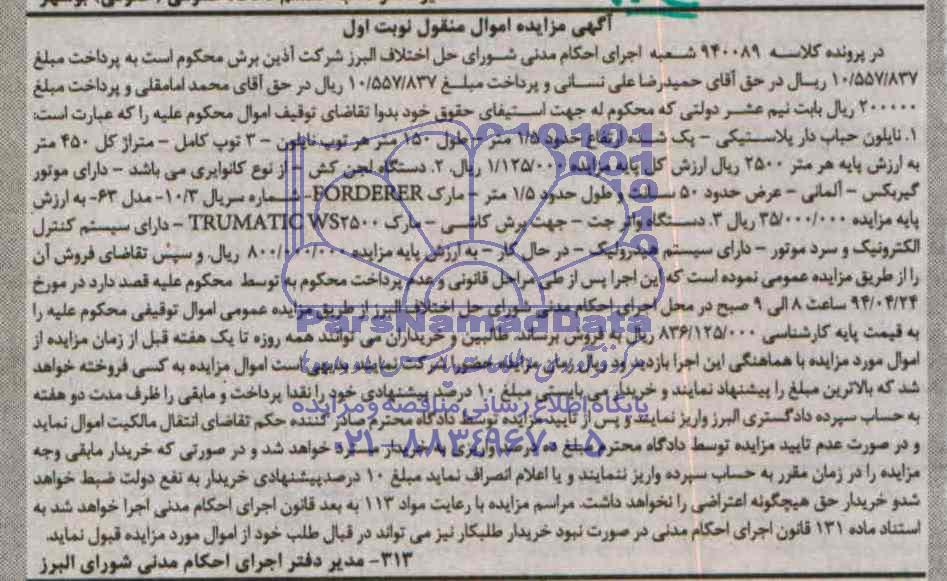 آگهی مزایده اموال منقول نوبت اول
در پرونده کلاسه ۹۴۰۰۸۹ شعبه اجرای احکام مدنی شورای حل اختلاف البرز شرکت آذین برش محکوم است به پرداخت مبلغ
۱۰/۵۵۷/۸۳۷ ریال در حق آقای حمیدرضا علی نسانی و پرداخت مبلغ ۱۰/۵۵۷/۸۳۷ ریال در حق آقای محمد امامقلی و پرداخت مبلغ
۲۰۰۰۰۰ ریال بابت نیم عشر دولتی که محکوم له جهت استیفای حقوق خود بدوا تقاضای توقیف اموال محکوم علیه را که عبارت است:
۱. نایلون حباب دار پلاستیکی - یک شده ارتفاع حدود ۱/۵ متر - طول ۱۵۰ متر هر توپ نایلون - ۳ توپ کامل - متراژ کل ۴۵۰ متر
به ارزش پایه هر متر ۲۵۰۰ ریال ارزش کل پایه مزایده ۱/۱۲۵/۰۰۰ ریال، ۲. دستگاه لجن کش - از نوع کانوایری می باشد - دارای موتور
گیربکس - آلمانی - عرض حدود ۵۰ سانت و طول حدود ۱/۵ متر - مارک FORDERER - شماره سریال ۱۰/۳- مدل ۶۳- به ارزش
پایه مزایده ۳۵/۰۰۰/۰۰۰ ریال ۳. دستگاه واتر جت - جهت برش کاشی - مارک TRUMATIC WS۲۵۰۰ - دارای سیستم کنترل
الکترونیک و سرد موتور - دارای سیستم هیدرولیک - در حال کار - به ارزش پایه مزایده ۸۰۰/۰۰۰/۰۰۰ ریال، و سپس تقاضای فروش آن
را از طریق مزایده عمومی نموده است که این اجرا پس از طی مراحل قانونی و عدم پرداخت محکوم به توسط محکوم علیه قصد دارد در مورخ
۹۴/۰۴/۲۴ ساعت ۸ الی ۹ صبح در محل اجرای احکام مدنی شورای حل اختلاف البرز از طریق مزایده عمومی اموال توقیفی محکوم علیه را
به قیمت پایه کارشناسی ۸۳۶/۱۲۵/۰۰۰ ریال به فروش برساند. طالبین و خریداران می توانند همه روزه تا یک هفته قبل از زمان مزایده از
اموال مورد مزایده با هماهنگی این اجرا بازدید و در زمان مزایده حضورا شرکت نمایند بدیهی است اموال مزایده به کسی فروخته خواهد
شد که بالاترین مبلغ را پیشنهاد نمایند و خریدار می بایستی مبلغ ۱۰ درصد پیشنهادی خود را نقدا پرداخت و مابقی را ظرف مدت دو هفته
به حساب سپرده دادگستری البرز واریز نمایند و پس از تایید مزایده توسط دادگاه محترم صادر کننده حکم تقاضای انتقال مالکیت اموال نماید
و در صورت عدم تایید مزایده توسط دادگاه محترم مبلغ ده درصد واریزی به خریدار مسترد خواهد شد و در صورتی که خریدار مابقی وجه
مزایده را در زمان مقرر به حساب سپرده واریز ننمایند و یا اعلام انصراف نماید مبلغ ۱۰ درصدپیشنهادی خریدار به نفع دولت ضبط خواهد
شدو خریدار حق هیچگونه اعتراضی را نخواهد داشت. مراسم مزایده با رعایت مواد ۱۱۳ به بعد قانون اجرای احکام مدنی اجرا خواهد شد به
استناد ماده ۱۳۱ قانون اجرای احکام مدنی در صورت نبود خریدار طلبکار نیز می تواند در قبال طلب خود از اموال مورد مزایده قبول نماید.
۳۱۳- مدیر دفتر اجرای احکام مدنی شورای البرز
ParsNamadData
پایگاه اطلاع رسانی مناقصه و مزایده
۰۲۱-۸۸۳۴۹۶۷۰-۵